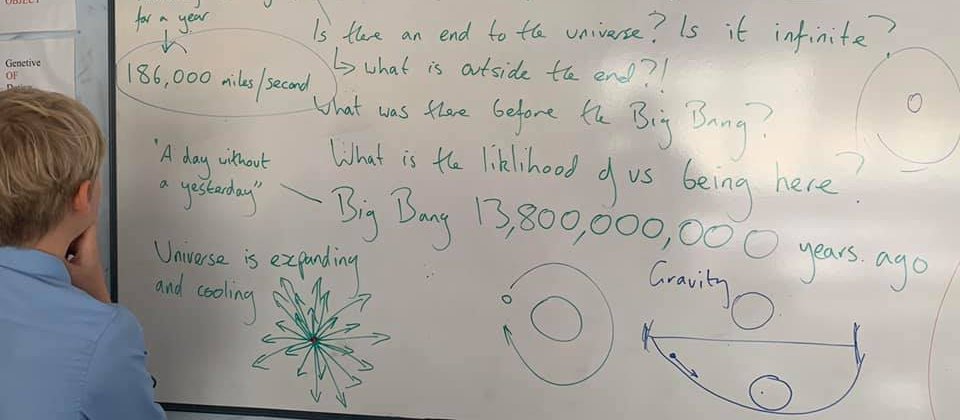 OBJECT
Genetive
OF
for a year
186,000 miles/second
Is there an end to the universe? Is it infinite?
What is outside the end?!
What was there before the Big Bang?
What is the liklihood of us being here?
'A day without
a yesterday"
Big Bang 13,800,000,000 years ago
Universe is expanding
and cooling
Gravity